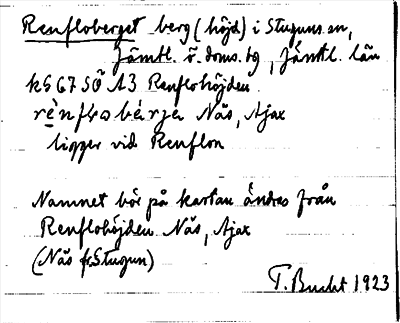 Renfloberget berg (höjd) i Stuguns sn,
Jämtl. ö. doms. tg, Jämtl. län
k 567 SÖ A3 Renflohöjden
rènflobærje Näs, Ajax
ligger vid Renflon
Namnet bör på kartan ändras från
Renflohöjden Näs, Ajax
(Näs fr. Stugun)
T. Bucht 1923